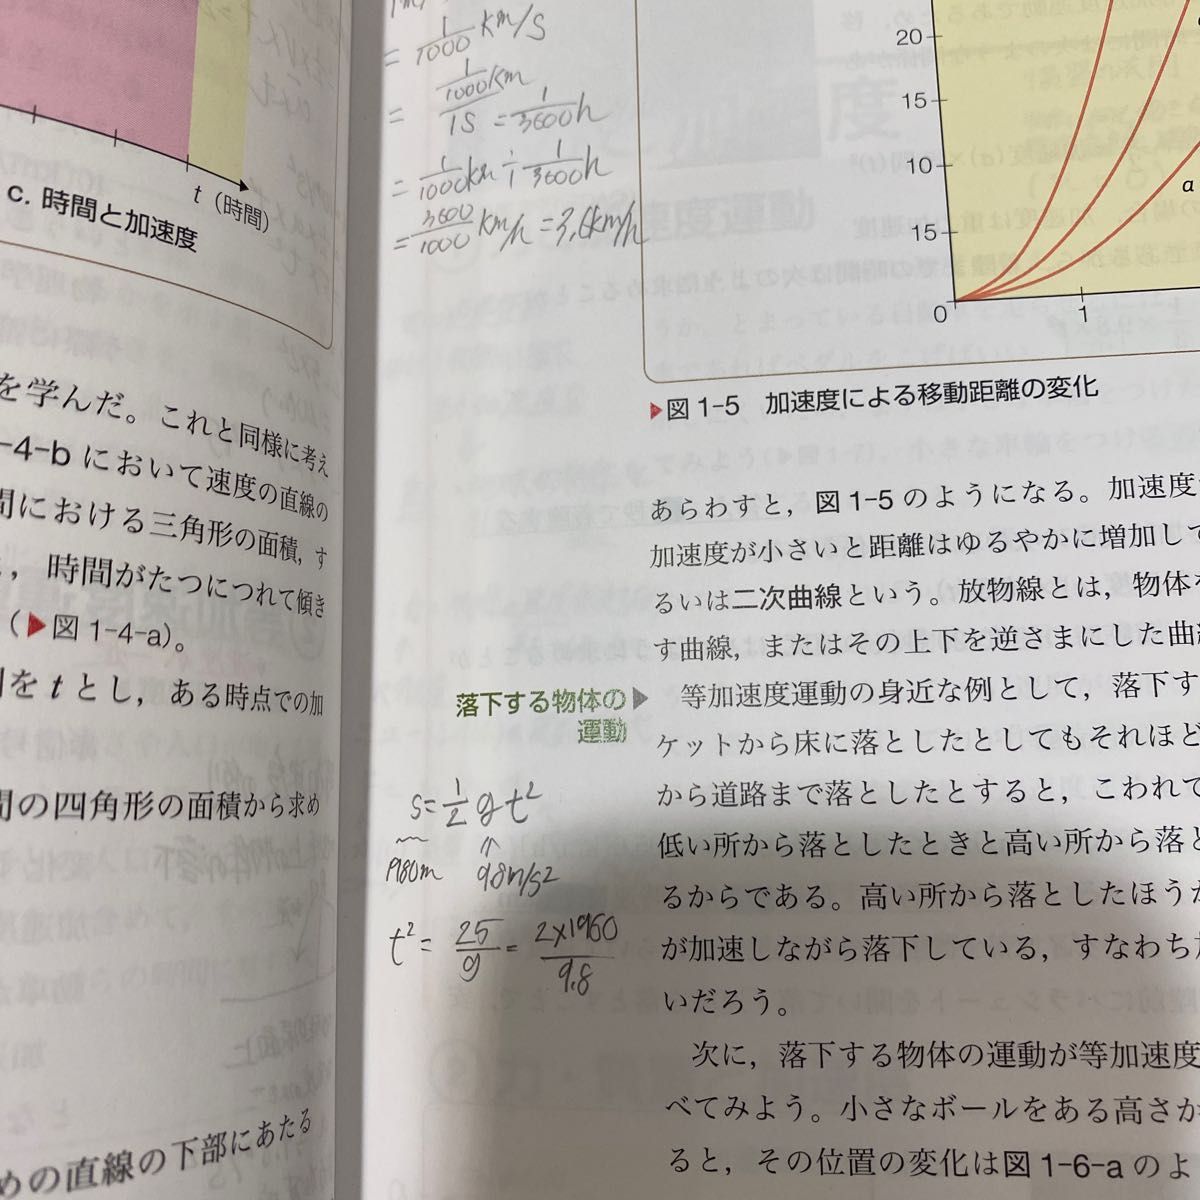 t（時間）
c. 時間と加速度
を学んだ。これと同様に考え
-4-b において速度の直線の
間における三角形の面積，す
，時間がたつにつれて傾き
（▶図 1-4-a）。
を t とし，ある時点での加
間の四角形の面積から求め
めの直線の下部にあたる
= 1/1000 km/s
= 1/1000km / 1s = 1/3600h
= 1/1000km ÷ 1/3600h
= 3600/1000 km/h = 3.6km/h
20
15
10
15
0
1
a
▶図 1-5 加速度による移動距離の変化
あらわすと，図 1-5 のようになる。加速度
加速度が小さいと距離はゆるやかに増加して
るいは二次曲線という。放物線とは，物体
す曲線，またはその上下を逆さまにした曲
落下する物体の▶
運動
等加速度運動の身近な例として，落下す
ケットから床に落としたとしてもそれほど
から道路まで落としたとすると，こわれて
低い所から落としたときと高い所から落と
るからである。高い所から落としたほう
が加速しながら落下している，すなわち
いだろう。
次に，落下する物体の運動が等加速度
べてみよう。小さなボールをある高さか
ると，その位置の変化は図 1-6-a のよ
s = 1/2 g t²
9.8m/s²
t² = 2S/g = 2×1960/9.8